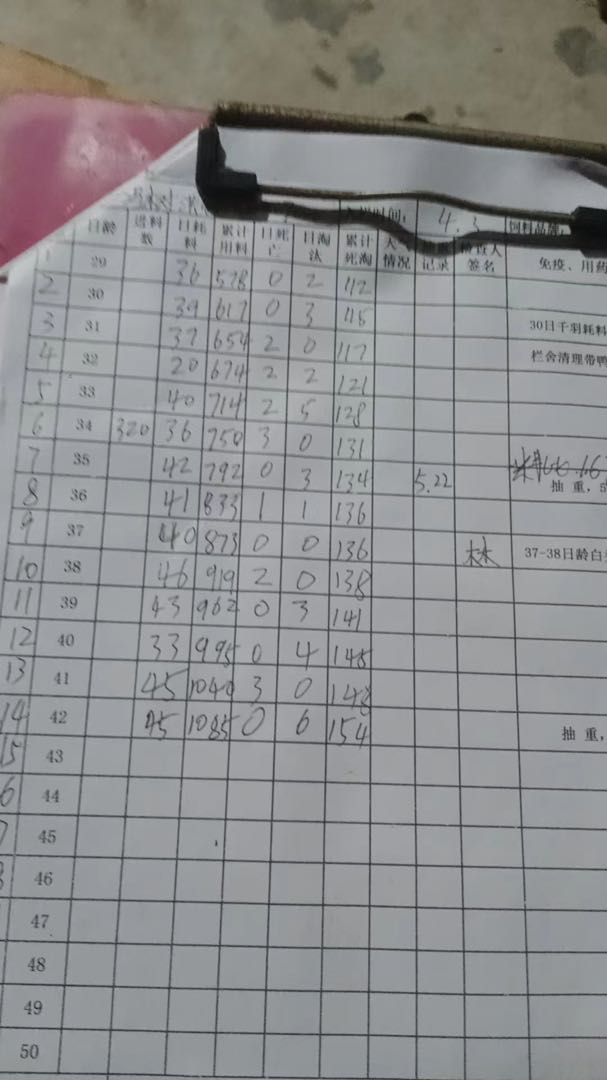 时间： 4.3 饲料品种：
日龄 进料数 日耗料 累计用料 日死亡 日淘汰 累计死淘 天气情况 记录 签名 免疫、用药
1 29 36 578 0 2 112
2 30 39 617 0 3 115
3 31 37 654 2 0 117 30日千羽耗料
4 32 20 674 2 2 121 栏舍清理带鸭
5 33 40 714 2 5 128
6 34 320 36 750 3 0 131
7 35 42 792 0 3 134 5.22 抽重，
8 36 41 833 1 1 136
9 37 40 873 0 0 136 林 37-38日龄白
10 38 46 919 2 0 138
11 39 43 962 0 3 141
12 40 33 995 0 4 145
13 41 45 1040 3 0 148
14 42 45 1085 0 6 154 抽重，
15 43
6 44
7 45
8 46
47
48
49
50